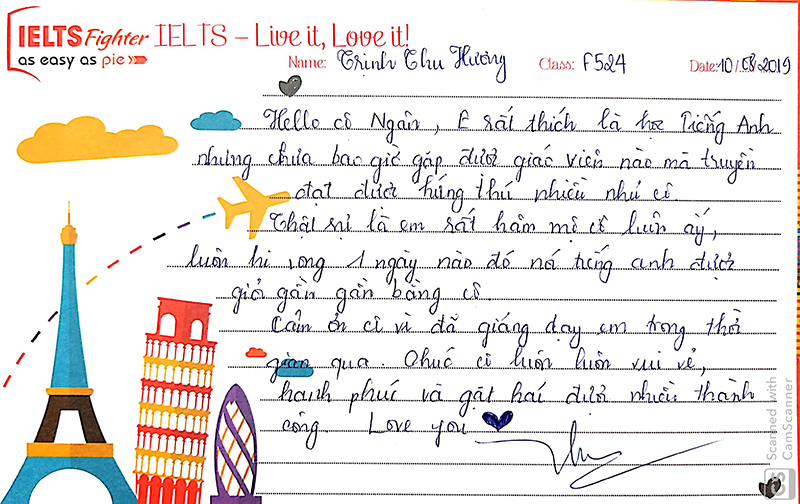 IELTS Fighter IELTS – Live it, Love it!
as easy as pie
Name: Trịnh Thu Hương Class: F524 Date: 10/08/2019
Hello cô Ngân, E rất thích là học Tiếng Anh
nhưng chưa bao giờ gặp được giáo viên nào mà truyền
đạt được hứng thú nhiều như cô.
Thật sự là em rất hâm mộ cô luôn ấy,
luôn hi vọng 1 ngày nào đó nói tiếng anh được
giỏi gần gần bằng cô.
Cảm ơn cô vì đã giảng dạy em trong thời
gian qua. Chúc cô luôn luôn vui vẻ,
hạnh phúc và gặt hái được nhiều thành
công. Love you
Scanned with
CamScanner
CS